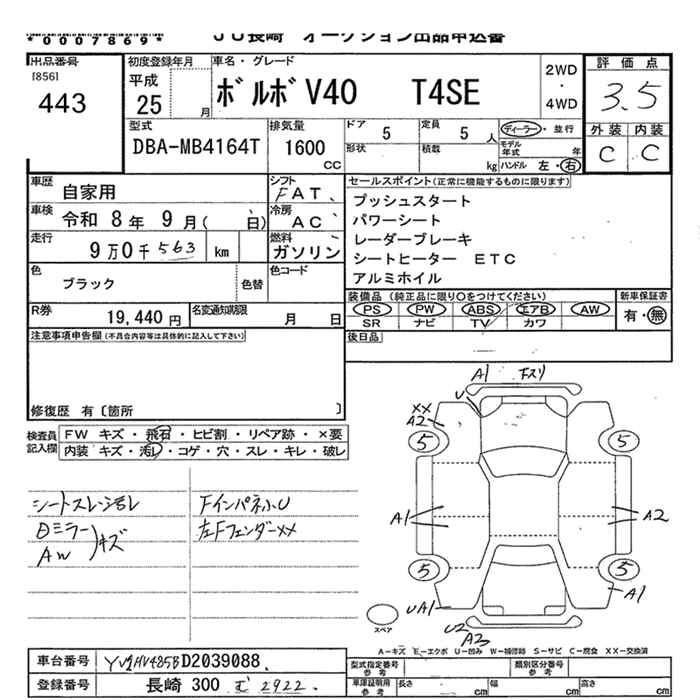 *0007869*
JU長崎 オークション出品申込書
出品番号
[856]
443
初度登録年月
平成
25 月
車名・グレード
ボルボ V40 T4SE
2WD
・
4WD
評価点
3.5
外装 内装
C C
型式
DBA-MB4164T
排気量
1600
CC
ドア 5
形状
定員 5 人
積載 kg
ディーラー・並行
モデル年式 年
ハンドル 左・右
車歴 自家用
シフト FAT
車検 令和 8年 9月( 日)
冷房 AC
走行 9万0千563 km
燃料 ガソリン
色 ブラック 色替
色コード
R券 19,440 円
名変通知期限 月 日
セールスポイント(正常に機能するものに限ります)
プッシュスタート
パワーシート
レーダーブレーキ
シートヒーター ETC
アルミホイル
装備品 (純正品に限り〇をつけてください)
PS PW ABS エアB AW
SR ナビ TV カワ
新車保証書
有・無
後日品
注意事項申告欄(不具合内容等は具体的に記入して下さい)
修復歴 有〔箇所 〕
検査員記入欄
FW キズ・飛石・ヒビ割・リペア跡・×要
内装 キズ・汚レ・コゲ・穴・スレ・キレ・破レ
シートスレ・汚レ
日ミラー
AW
キズ
FインパネふU
左Fフェンダーxx
A1 Fスリ
U
XX
A2
5 5
A1 A2
5 5
A1
UA1
U2
A3
スペア
A-キズ E-エクボ U-凹み W-補修跡 S-サビ C-腐食 XX-交換済
車台番号 YV1MV485BD2039088
登録番号 長崎 300 む 2922
型式指定番号
参考
類別区分番号
参考
車庫証明用
参考
長さ cm
幅 cm
高さ cm